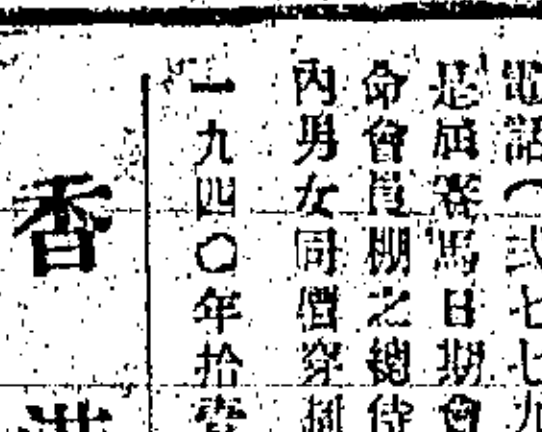 電話（式七七九
是屆賽馬日期會
命會員棚之總待
內男女同體穿
一九四〇年拾壹
香港